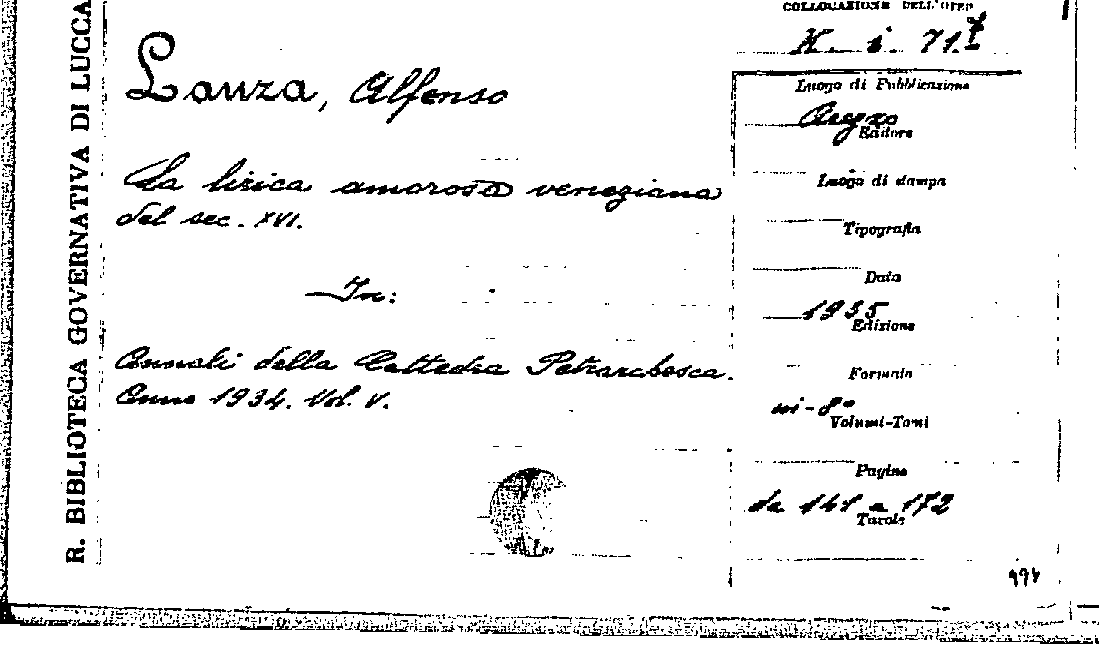 R. BIBLIOTECA GOVERNATIVA DI LUCCA
COLLOCAZIONE DELL'OPERA
Lanza, Alfonso
La lirica amorosa veneziana
del sec. XVI.
In:
Annali della Cattedra Petrarchesca.
Anno 1934. Vol. V.
Luogo di Pubblicazione
Arezzo
Editore
Luogo di stampa
Tipografia
Data
1935
Edizione
Formato
in-8°
Volumi-Tomi
Pagine
da 141 a 172
Tavole